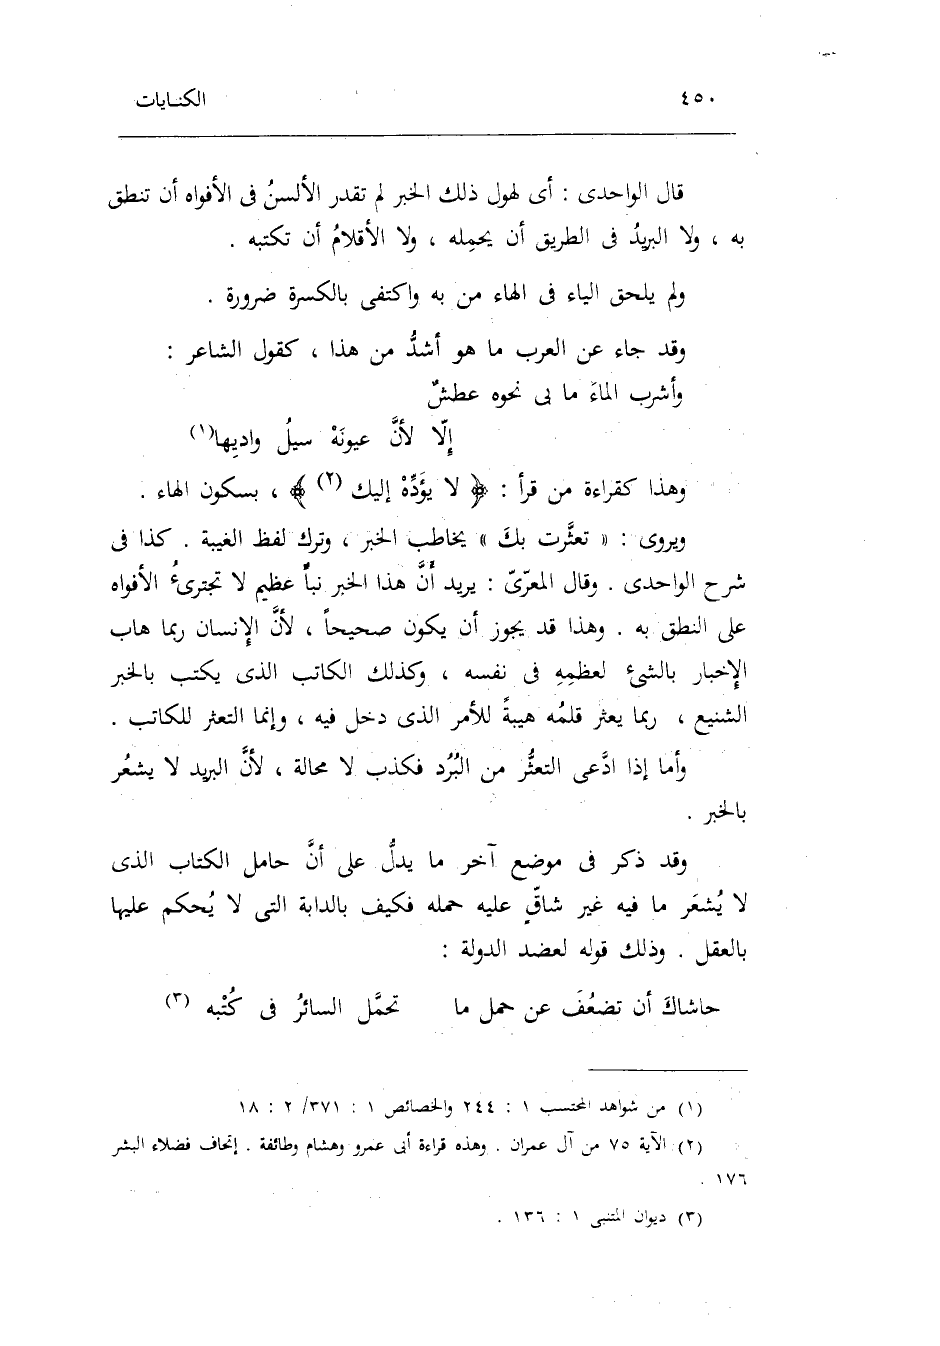 ٤٥٠ الكنايات
قال الواحدى : أى لهول ذلك الخبر لم تقدر الألسنُ فى الأفواه أن تنطق
به ، ولا البريدُ فى الطريق أن يحمِله ، ولا الأقلامُ أن تكتبه .
ولم يلحق الياء فى الهاء من به واكتفى بالكسرة ضرورة .
وقد جاء عن العرب ما هو أشدُّ من هذا ، كقول الشاعر :
وأشرب الماءَ ما بى نحوه عطشٌ
إلّا لأنَّ عيونَهْ سيلُ واديِها(١)
وهذا كقراءة من قرأ : ﴿ لا يؤَدِّهْ إليك (٢) ﴾ ، بسكون الهاء .
ويروى : « تعثَّرت بكَ » يخاطب الخبر ، وترك لفظ الغيبة . كذا فى
شرح الواحدى . وقال المعرّىّ : يريد أنَّ هذا الخبر نبأٌ عظيم لا تجترىءُ الأفواه
على النطق به . وهذا قد يجوز أن يكون صحيحاً ، لأنَّ الإنسان ربما هاب
الإخبار بالشىء لعظمِهِ فى نفسه ، وكذلك الكاتب الذى يكتب بالخبر
الشنيع ، ربما يعثر قلمُه هيبةً للأمر الذى دخل فيه ، وإنما التعثر للكاتب .
وأما إذا ادَّعى التعثُّر من البُرُد فكذب لا محالة ، لأنَّ البريد لا يشعُر
بالخبر .
وقد ذكر فى موضع آخر ما يدلُّ على أنَّ حامل الكتاب الذى
لا يُشعَر ما فيه غير شاقّ عليه حمله فكيف بالدابة التى لا يُحكم عليها
بالعقل . وذلك قوله لعضد الدولة :
حاشاكَ أن تضعُفَ عن حمل ما تحمَّل السائرُ فى كُتْبه (٣)
(١) من شواهد المحتسب ١ : ٢٤٤ والخصائص ١ : ٣٧١/ ٢ : ١٨
(٢) الآية ٧٥ من آل عمران . وهذه قراءة أبى عمرو وهشام وطائفة . إتحاف فضلاء البشر
١٧٦ .
(٣) ديوان المتنبى ١ : ١٣٦ .